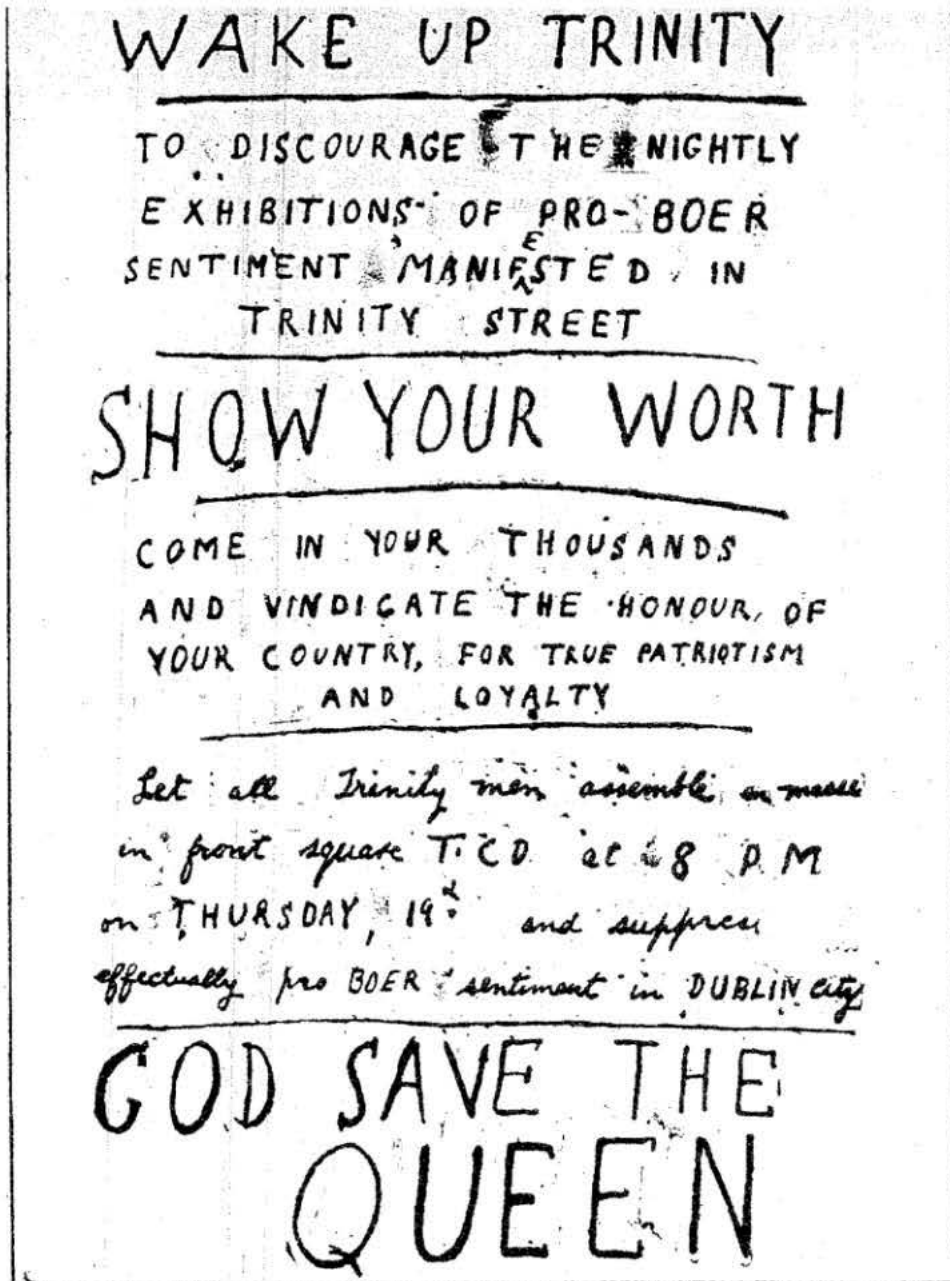 WAKE UP TRINITY
TO DISCOURAGE THE NIGHTLY
EXHIBITIONS OF PRO-BOER
SENTIMENT MANIFESTED IN
TRINITY STREET
SHOW YOUR WORTH
COME IN YOUR THOUSANDS
AND VINDICATE THE HONOUR OF
YOUR COUNTRY, FOR TRUE PATRIOTISM
AND LOYALTY
Let all Trinity men assemble en masse
in front square T.C D at 8 P M
on THURSDAY, 19
and suppress
effectually pro BOER sentiment in DUBLIN city
GOD SAVE THE
QUEEN